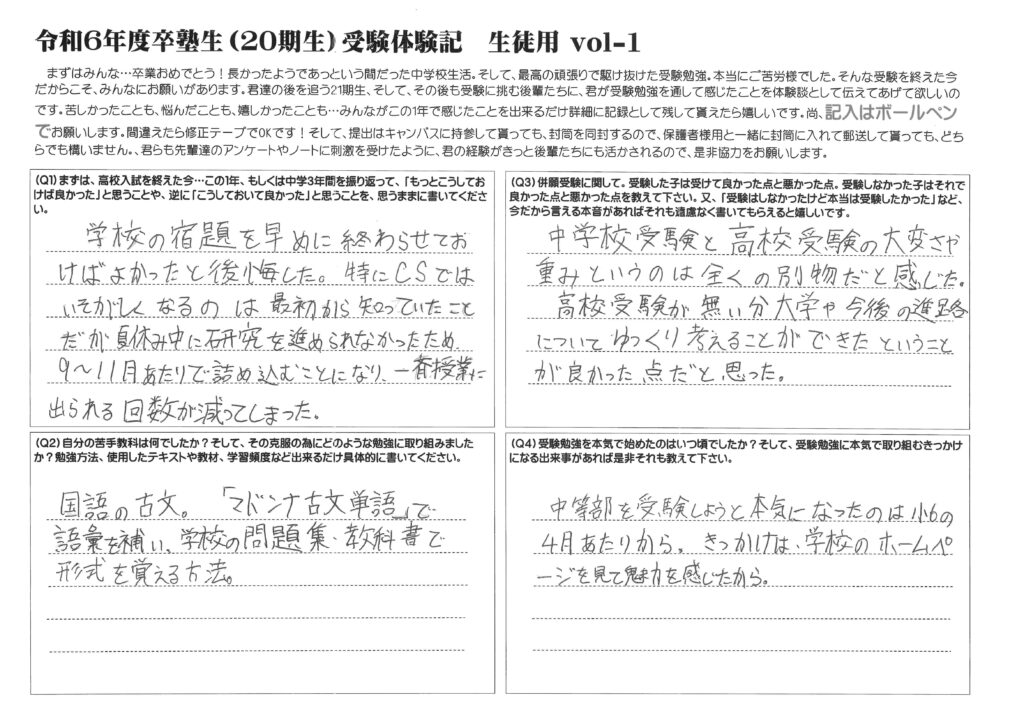 令和6年度卒塾生(20期生)受験体験記　生徒用 vol-1
まずはみんな…卒業おめでとう！長かったようであっという間だった中学校生活。そして、最高の頑張りで駆け抜けた受験勉強。本当にご苦労様でした。そんな受験を終えた今
だからこそ、みんなにお願いがあります。君達の後を追う21期生、そして、その後も受験に挑む後輩たちに、君が受験勉強を通して感じたことを体験談として伝えてあげて欲しいの
です。苦しかったことも、悩んだことも、嬉しかったことも…みんながこの1年で感じたことを出来るだけ詳細に記録として残して貰えたら嬉しいです。尚、記入はボールペン
でお願いします。間違えたら修正テープでOKです！そして、提出はキャンパスに持参して貰っても、封筒を同封するので、保護者様用と一緒に封筒に入れて郵送して貰っても、どち
らでも構いません。、君らも先輩達のアンケートやノートに刺激を受けたように、君の経験がきっと後輩たちにも活かされるので、是非協力をお願いします。
(Q1)まずは、高校入試を終えた今…この1年、もしくは中学3年間を振り返って、「もっとこうしてお
けば良かった」と思うことや、逆に「こうしておいて良かった」と思うことを、思うままに書いてくださ
い。
学校の宿題を早めに終わらせてお
けばよかったと後悔した。特にCSでは
いそがしくなるのは最初から知っていたこと
だが夏休み中に研究を進められなかったため
9～11月あたりで詰め込むことになり、一斉授業に
出られる回数が減ってしまった。
(Q2)自分の苦手教科は何でしたか？そして、その克服の為にどのような勉強に取り組みました
か？勉強方法、使用したテキストや教材、学習頻度など出来るだけ具体的に書いてください。
国語の古文。「マドンナ古文単語」で
語彙を補い、学校の問題集・教科書で
形式を覚える方法。
(Q3)併願受験に関して。受験した子は受けて良かった点と悪かった点。受験しなかった子はそれで
良かった点と悪かった点を教えて下さい。又、「受験はしなかったけど本当は受験したかった」など、
今だから言える本音があればそれも遠慮なく書いてもらえると嬉しいです。
中学校受験と高校受験の大変さや
重みというのは全くの別物だと感じた。
高校受験が無い分大学や今後の進路
についてゆっくり考えることができたということ
が良かった点だと思った。
(Q4)受験勉強を本気で始めたのはいつ頃でしたか？そして、受験勉強に本気で取り組むきっかけ
になる出来事があれば是非それも教えて下さい。
中等部を受験しようと本気になったのは小6の
4月あたりから。きっかけは、学校のホームペ
ージを見て魅力を感じたから。